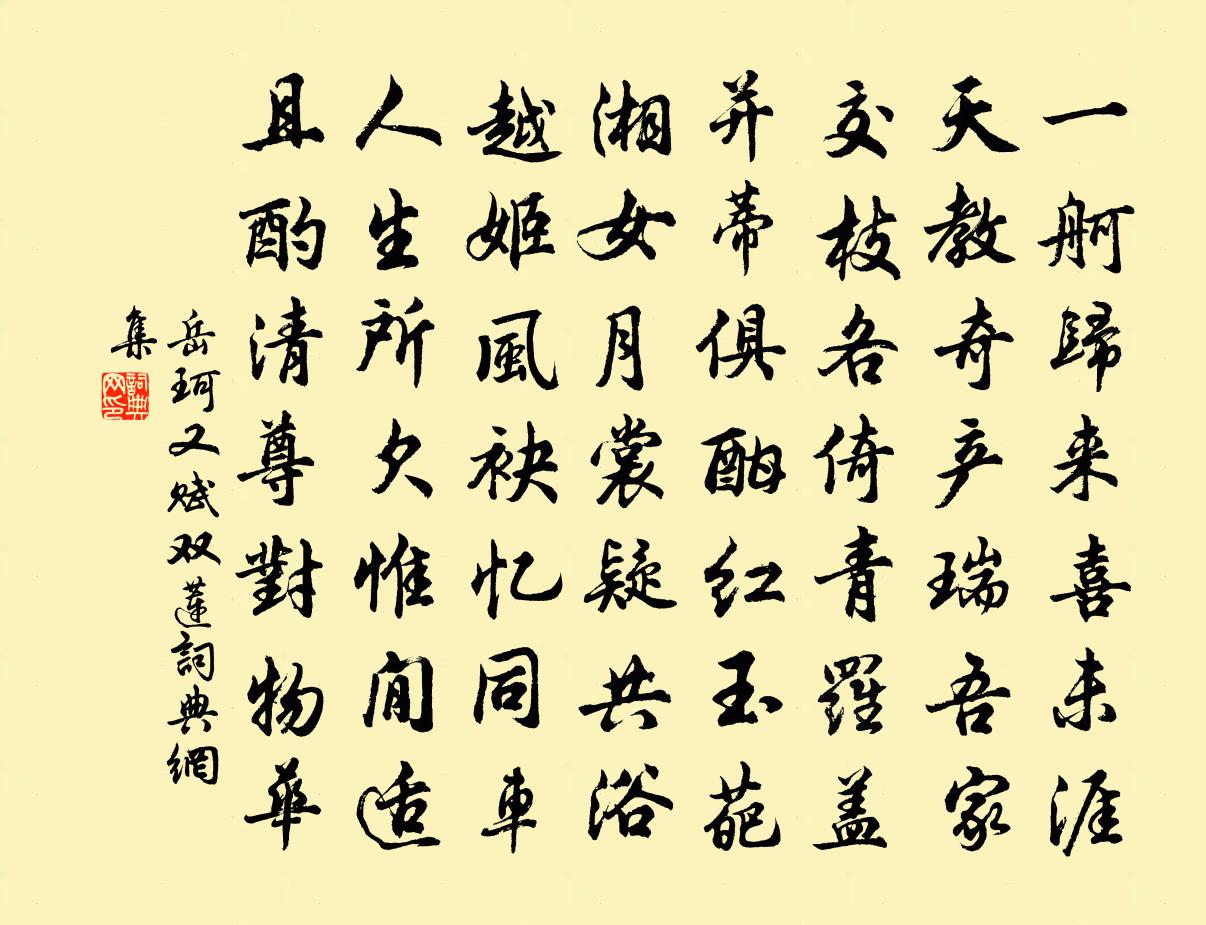 一舸歸来喜未涯
天教奇产瑞吾家
交枝各倚青羅盖
并蒂俱酣红玉葩
湘女月裳疑共浴
越姬風袂忆同車
人生所欠惟閒适
且酌清尊對物華
岳珂又赋双蓮詞典網
集
詞典
网印